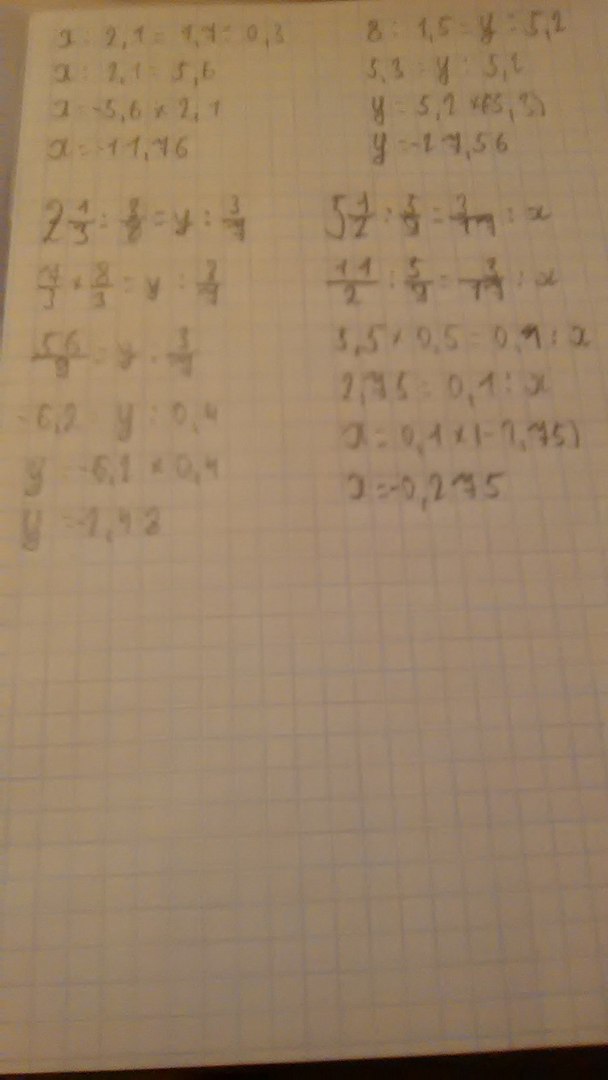 x : 2,1 = 1,7 : 0,3
x : 2,1 = 5,6
x = -5,6 × 2,1
x = -11,76
8 : 1,5 = y : 5,2
5,3 = y : 5,2
y = 5,2 × (-5,3)
y = -27,56
2 1/3 : 3/8 = y : 3/7
7/3 × 8/3 = y : 3/7
56/9 = y : 3/7
-6,2 = y : 0,4
y = -6,2 × 0,4
y = -2,48
5 1/2 : 5/9 = 3/17 : x
11/2 : 5/9 = 3/17 : x
5,5 × 0,5 = 0,1 : x
2,75 = 0,1 : x
x = 0,1 × (-2,75)
x = -0,275